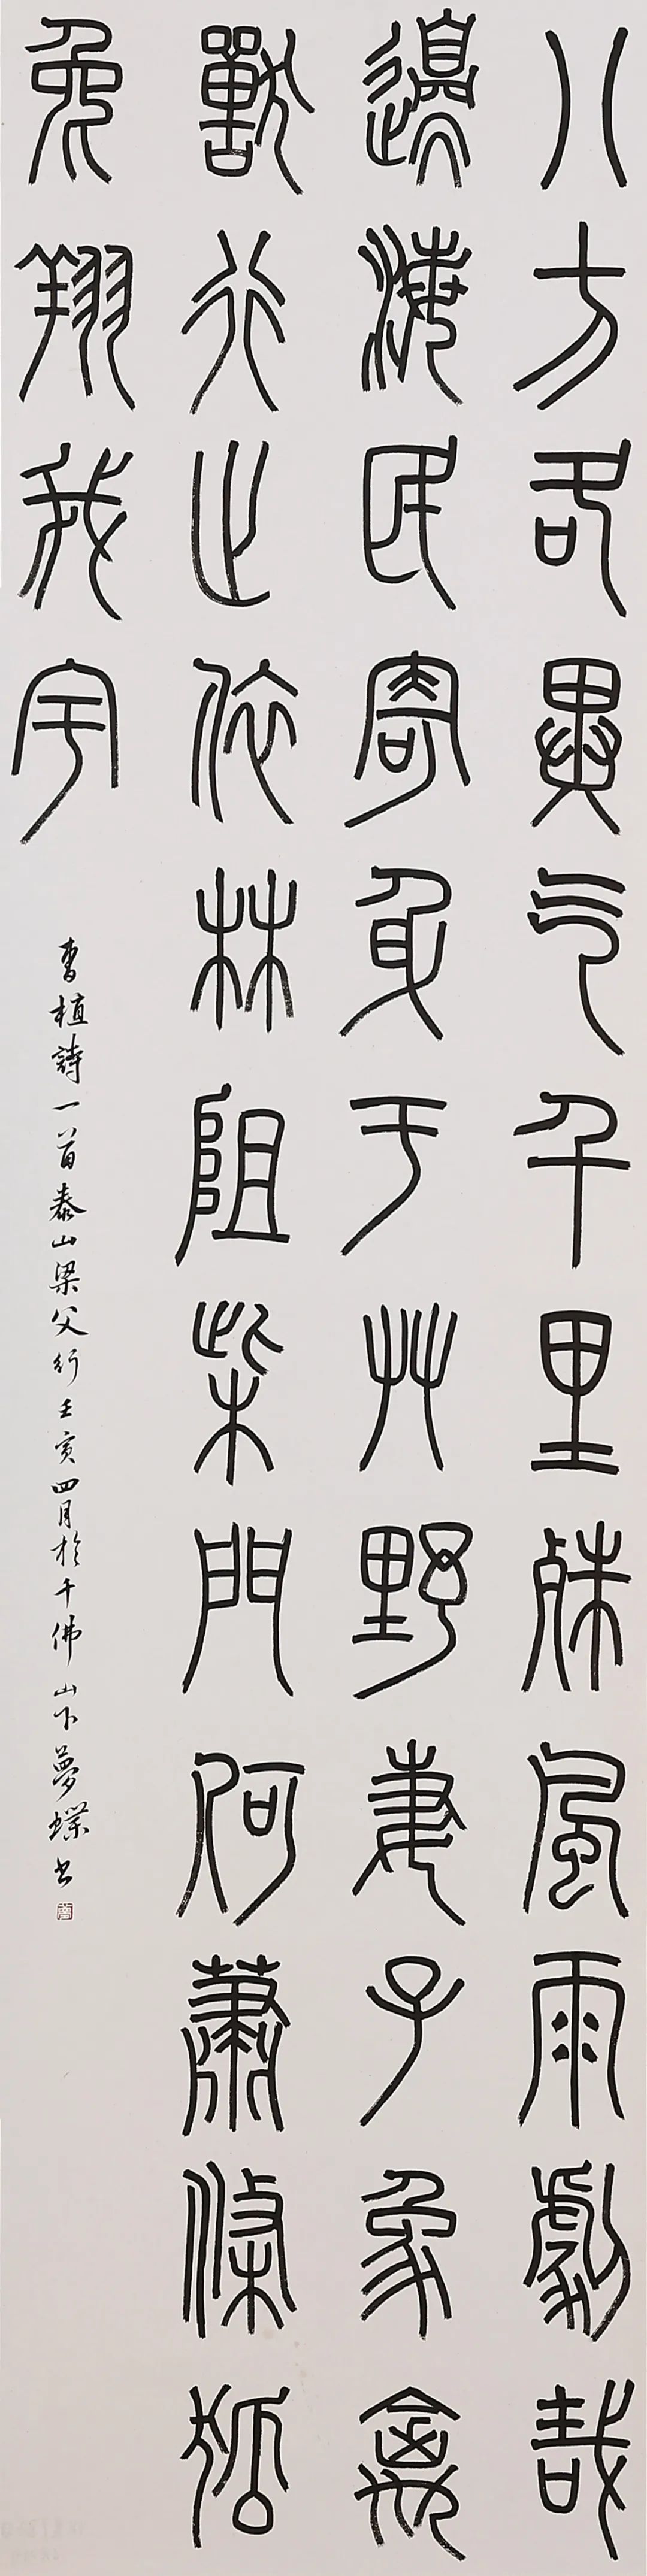 八方各異气千里殊風雨劇哉
邊海民寄身于艸野妻子象禽
獸行止依林阻柴門何蕭條狐
兔翔我宇
曹植詩一首泰山梁父行壬寅四月於千佛山下夢蝶书